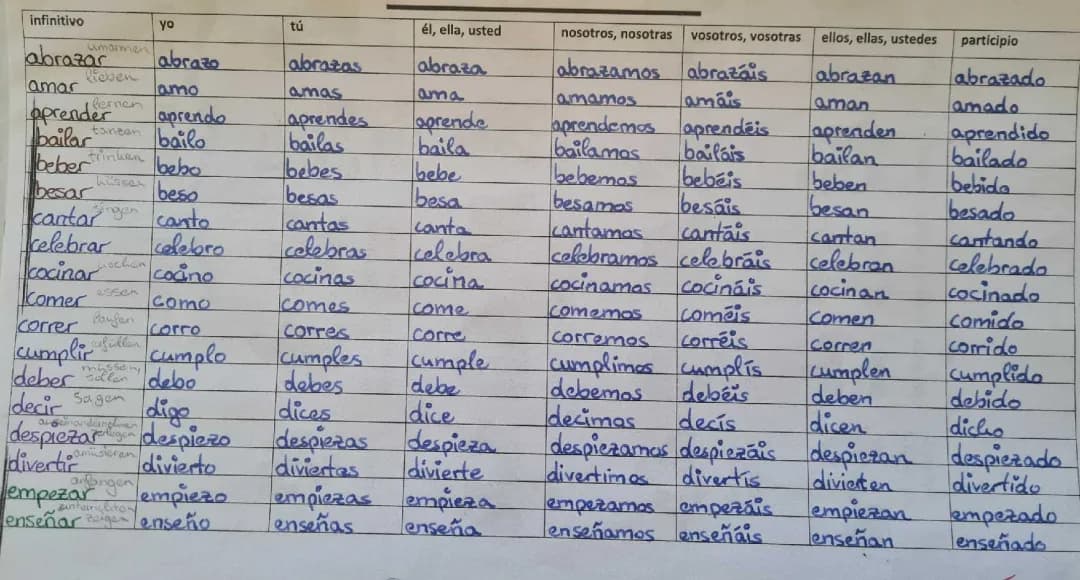 infinitivo yo tú él, ella, usted nosotros, nosotras vosotros, vosotras ellos, ellas, ustedes participio
abrazar umarmen abrazo abrazas abraza abrazamos abrazáis abrazan abrazado
amar lieben amo amas ama amamos amáis aman amado
aprender lernen aprendo aprendes aprende aprendemos aprendéis aprenden aprendido
bailar tanzen bailo bailas baila bailamos bailáis bailan bailado
beber trinken bebo bebes bebe bebemos bebéis beben bebido
besar küssen beso besas besa besamos besáis besan besado
cantar singen canto cantas canta cantamos cantáis cantan cantando
celebrar celebro celebras celebra celebramos celebráis celebran celebrado
cocinar kochen cocino cocinas cocina cocinamos cocináis cocinan cocinado
comer essen como comes come comemos coméis comen comido
correr laufen corro corres corre corremos corréis corren corrido
cumplir erfüllen cumplo cumples cumple cumplimos cumplís cumplen cumplido
deber müssen, sollen debo debes debe debemos debéis deben debido
decir sagen digo dices dice decimos decís dicen dicho
despiezar zerlegen despiezo despiezas despieza despiezamos despiezáis despiezan despiezado
divertir amüsieren divierto diviertas divierte divertimos divertís divierten divertido
empezar anfangen empiezo empiezas empieza empezamos empezáis empiezan empezado
enseñar zeigen enseño enseñas enseña enseñamos enseñáis enseñan enseñado